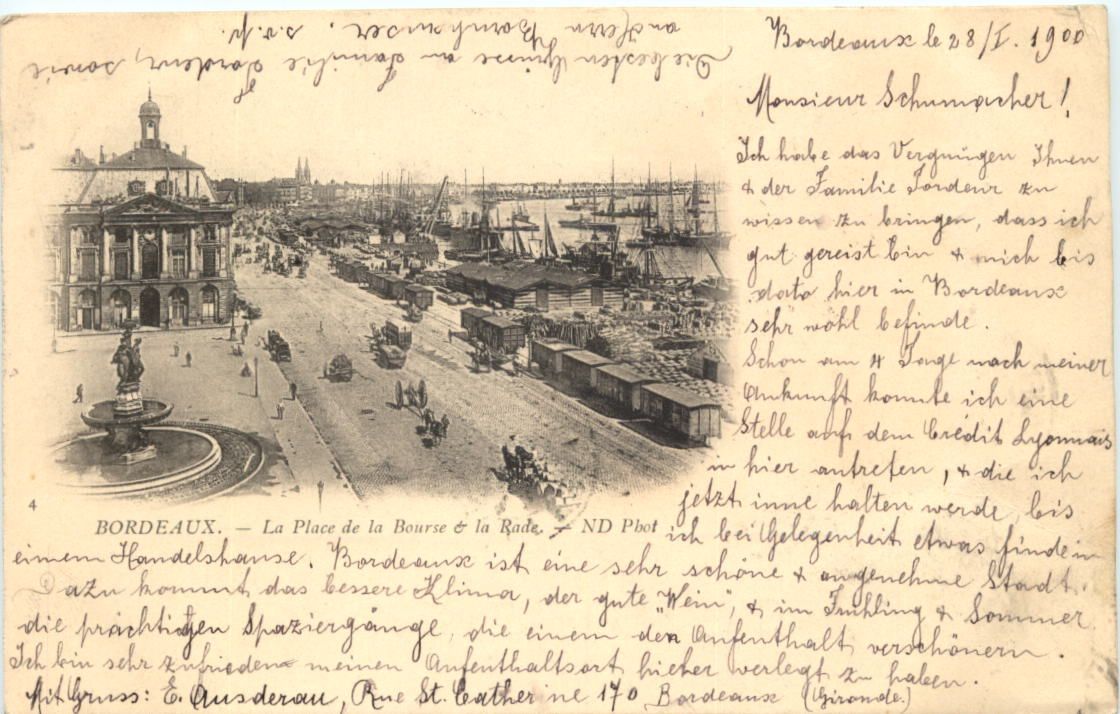 Bordeaux le 28/I. 1900
Monsieur Schumacher!
Ich habe das Vergnügen Ihnen
& der Familie Tordeur zu
wissen zu bringen, dass ich
gut gereist bin & mich bis
dato hier in Bordeaux
sehr wohl befinde.
Schon am 4 Tage nach meiner
Ankunft konnte ich eine
Stelle auf dem Crédit Lyonnais
in hier antreten, & die ich
jetzt inne halten werde, bis
ich bei Gelegenheit etwas finde in
einem Handelshause. Bordeaux ist eine sehr schöne & angenehme Stadt.
Dazu kommt das bessere Klima, der gute "Wein", & im Frühling & Sommer
die prächtigen Spaziergänge, die einem den Aufenthalt verschönern.
Ich bin sehr zufrieden meinen Aufenthaltsort hieher verlegt zu haben.
Mit Gruss: E. Ausderau, Rue St. Catherine 170 Bordeaux (Gironde.)
Die besten Grüsse an Familie Tordeur, sowie
an Herrn Bornhauser, s.v.p.
4
BORDEAUX. — La Place de la Bourse & la Rade. — ND Phot